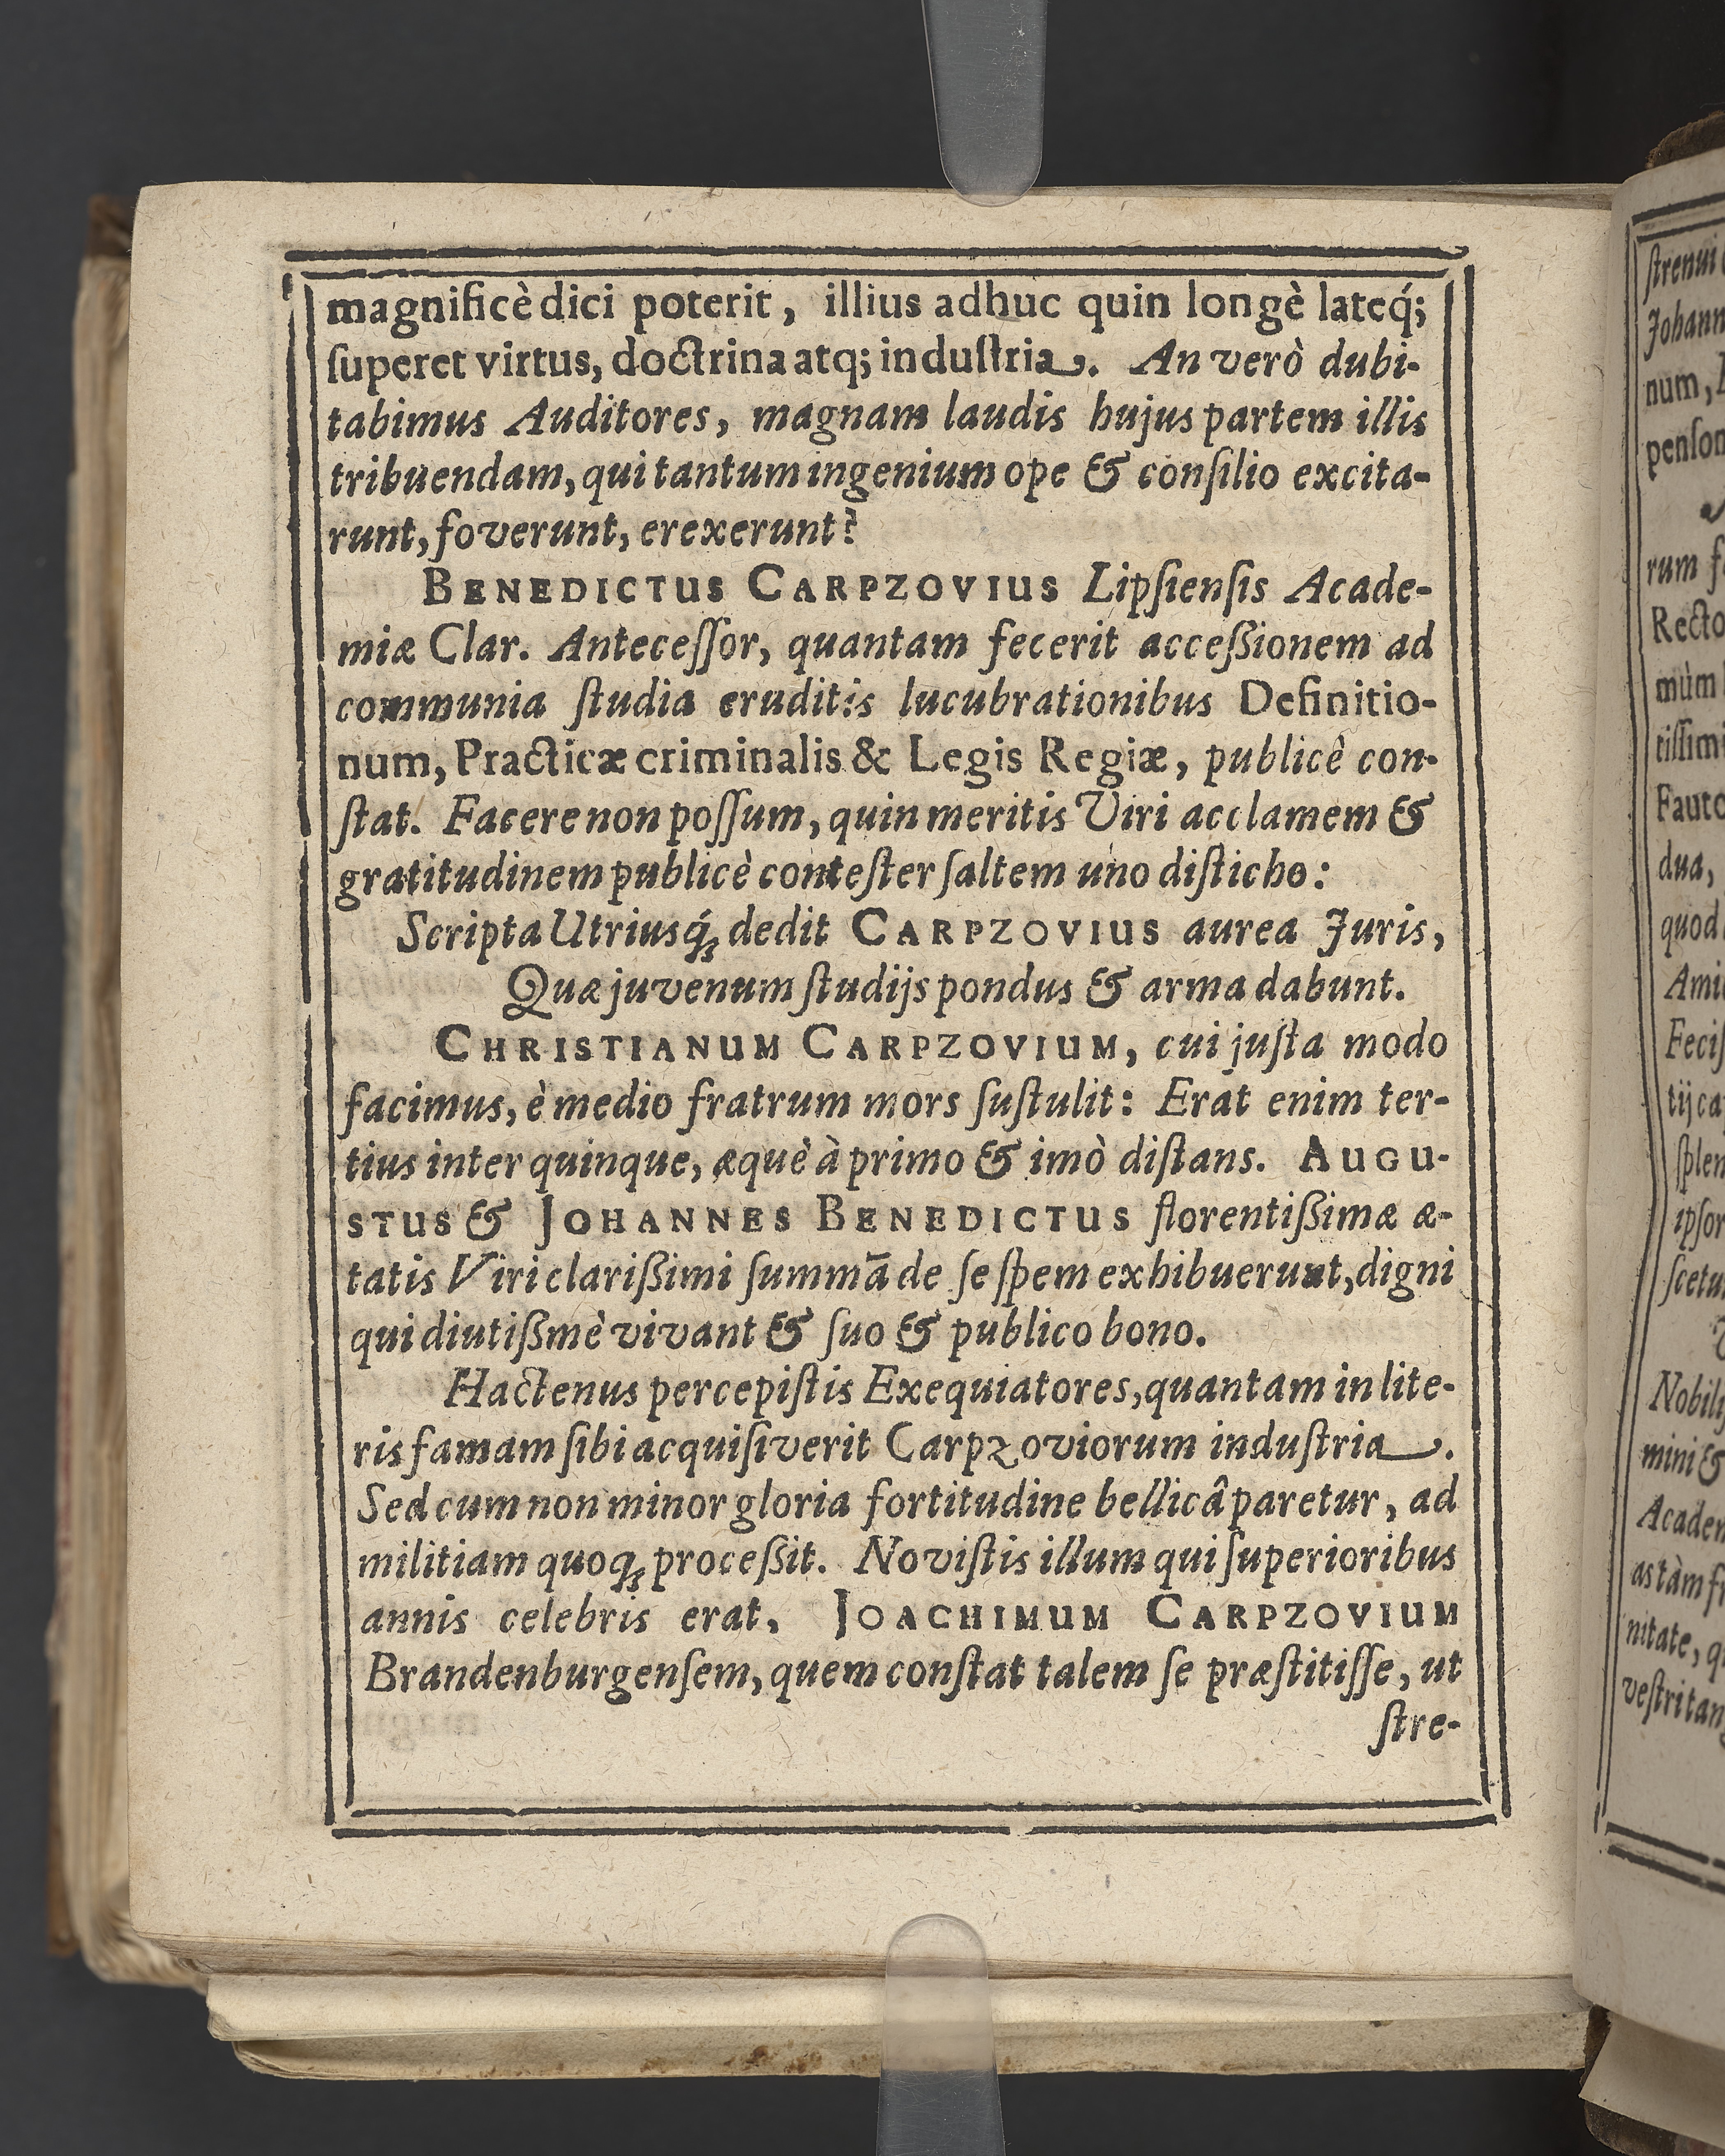 magnificè dici poterit, illius adhuc quin longè lateq́;
ſuperet virtus, doctrina atq; induſtria. An verò dubi-
tabimus Auditores, magnam laudis hujus partem illis
tribuendam, qui tantum ingenium ope & conſilio excita-
runt, foverunt, erexerunt?
BENEDICTUS CARPZOVIUS Lipſienſis Acade-
miæ Clar. Anteceſſor, quantam fecerit acceſsionem ad
communia ſtudia eruditis lucubrationibus Definitio-
num, Practicæ criminalis & Legis Regiæ, publicè con-
ſtat. Facere non poſſum, quin meritis Viri acclamem &
gratitudinem publicè conteſter ſaltem uno diſticho:
Scripta Utriusq́; dedit CARPZOVIUS aurea Juris,
Quæ juvenum ſtudijs pondus & arma dabunt.
CHRISTIANUM CARPZOVIUM, cui juſta modo
facimus, è medio fratrum mors ſuſtulit: Erat enim ter-
tius inter quinque, æquè à primo & imò diſtans. AUGU-
STUS & JOHANNES BENEDICTUS florentiſsimæ æ-
tatis Viri clariſsimi ſummā de ſe ſpem exhibuerunt, digni
qui diutiſsmè vivant & ſuo & publico bono.
Hactenus percepiſtis Exequiatores, quantam in lite-
ris famam ſibi acquiſiverit Carpzoviorum induſtria.
Sed cum non minor gloria fortitudine bellicâ paretur, ad
militiam quoq; proceſsit. Noviſtis illum qui ſuperioribus
annis celebris erat, JOACHIMUM CARPZOVIUM
Brandenburgenſem, quem conſtat talem ſe præſtitiſſe, ut
ſtre-
ſtrenui
Johann
num,
penſon
rum
Recto
mùm
tiſſimi
Fauto
dua,
quod
Ami
Feciſ
tij ca
ſplen
ipſor
ſcetu
Nobili
mini &
Academ
as tàm
nitate, q
veſtri tan